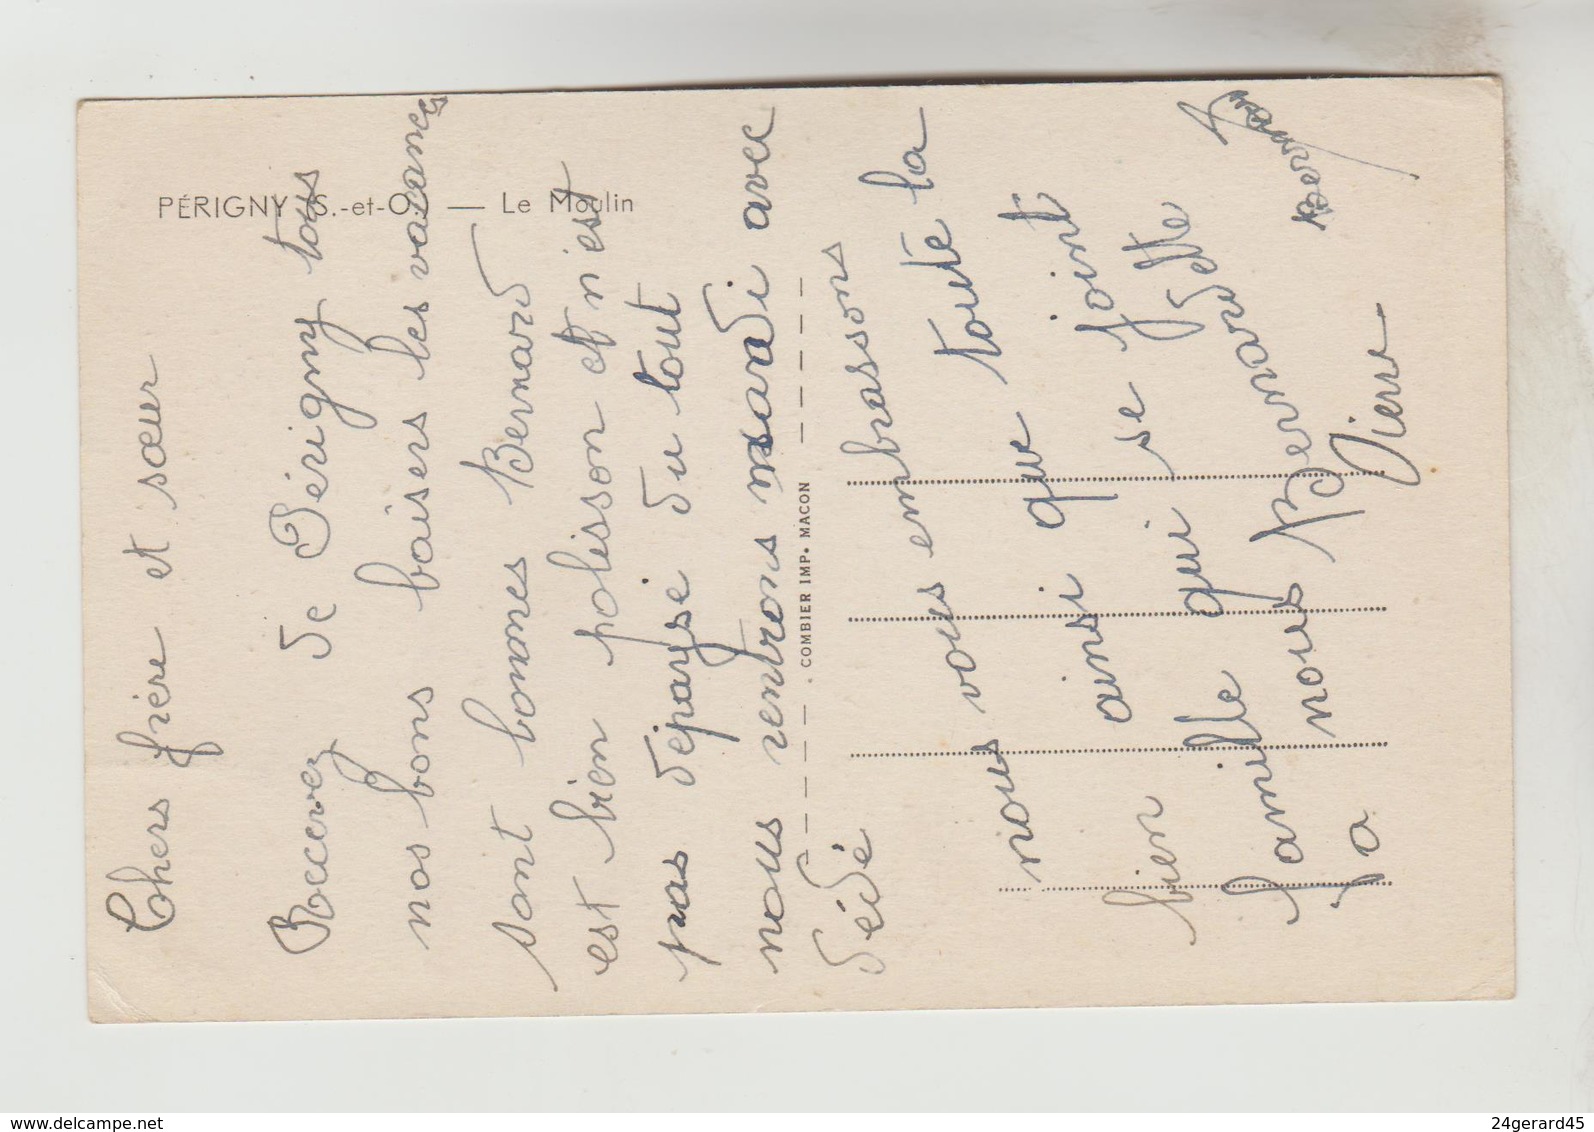 PÉRIGNY (S.-et-O.) — Le Moulin
Chers frère et sœur
Recevez de Périgny tous
nos bons baisers les vacances
sont bonnes Bernard
est bien polisson et n'est
pas dépaysé du tout
nous rentrons mardi avec
dédé
COMBIER IMP. MACON
nous vous embrassons
bien ainsi que toute la
famille qui se joint
a nous Bernardette
Pierre
Bernard
delcampe.net
24gerard45